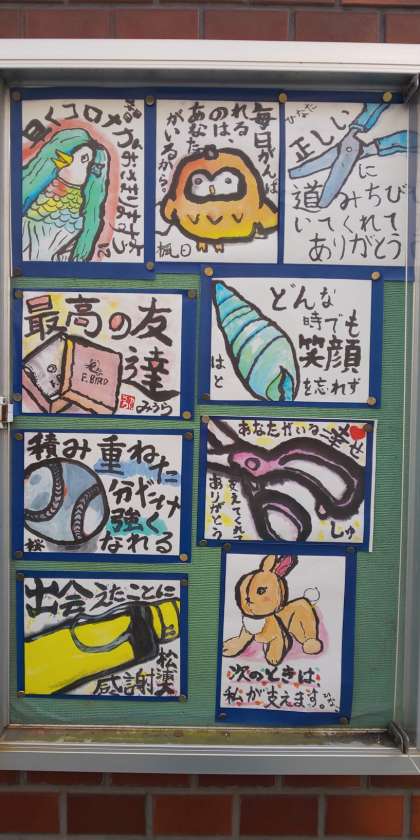 早くコロナ
がおさまりますように
毎日がんば
れる、
のは、
あなた
がいるから。
楓日
ひなた
正しい
道
に
みちび
いてくれて
ありがとう
最高の友
達
E.BIRD
みうら
どんな
時でも
笑顔
を忘れず
はと
積み重ねた
分だけ
強く
なれる
あなたがいる幸せ
支えてくれて
ありがとう
しゅ
出会えたことに
感謝
次のときは、
私が支えます。
ひな